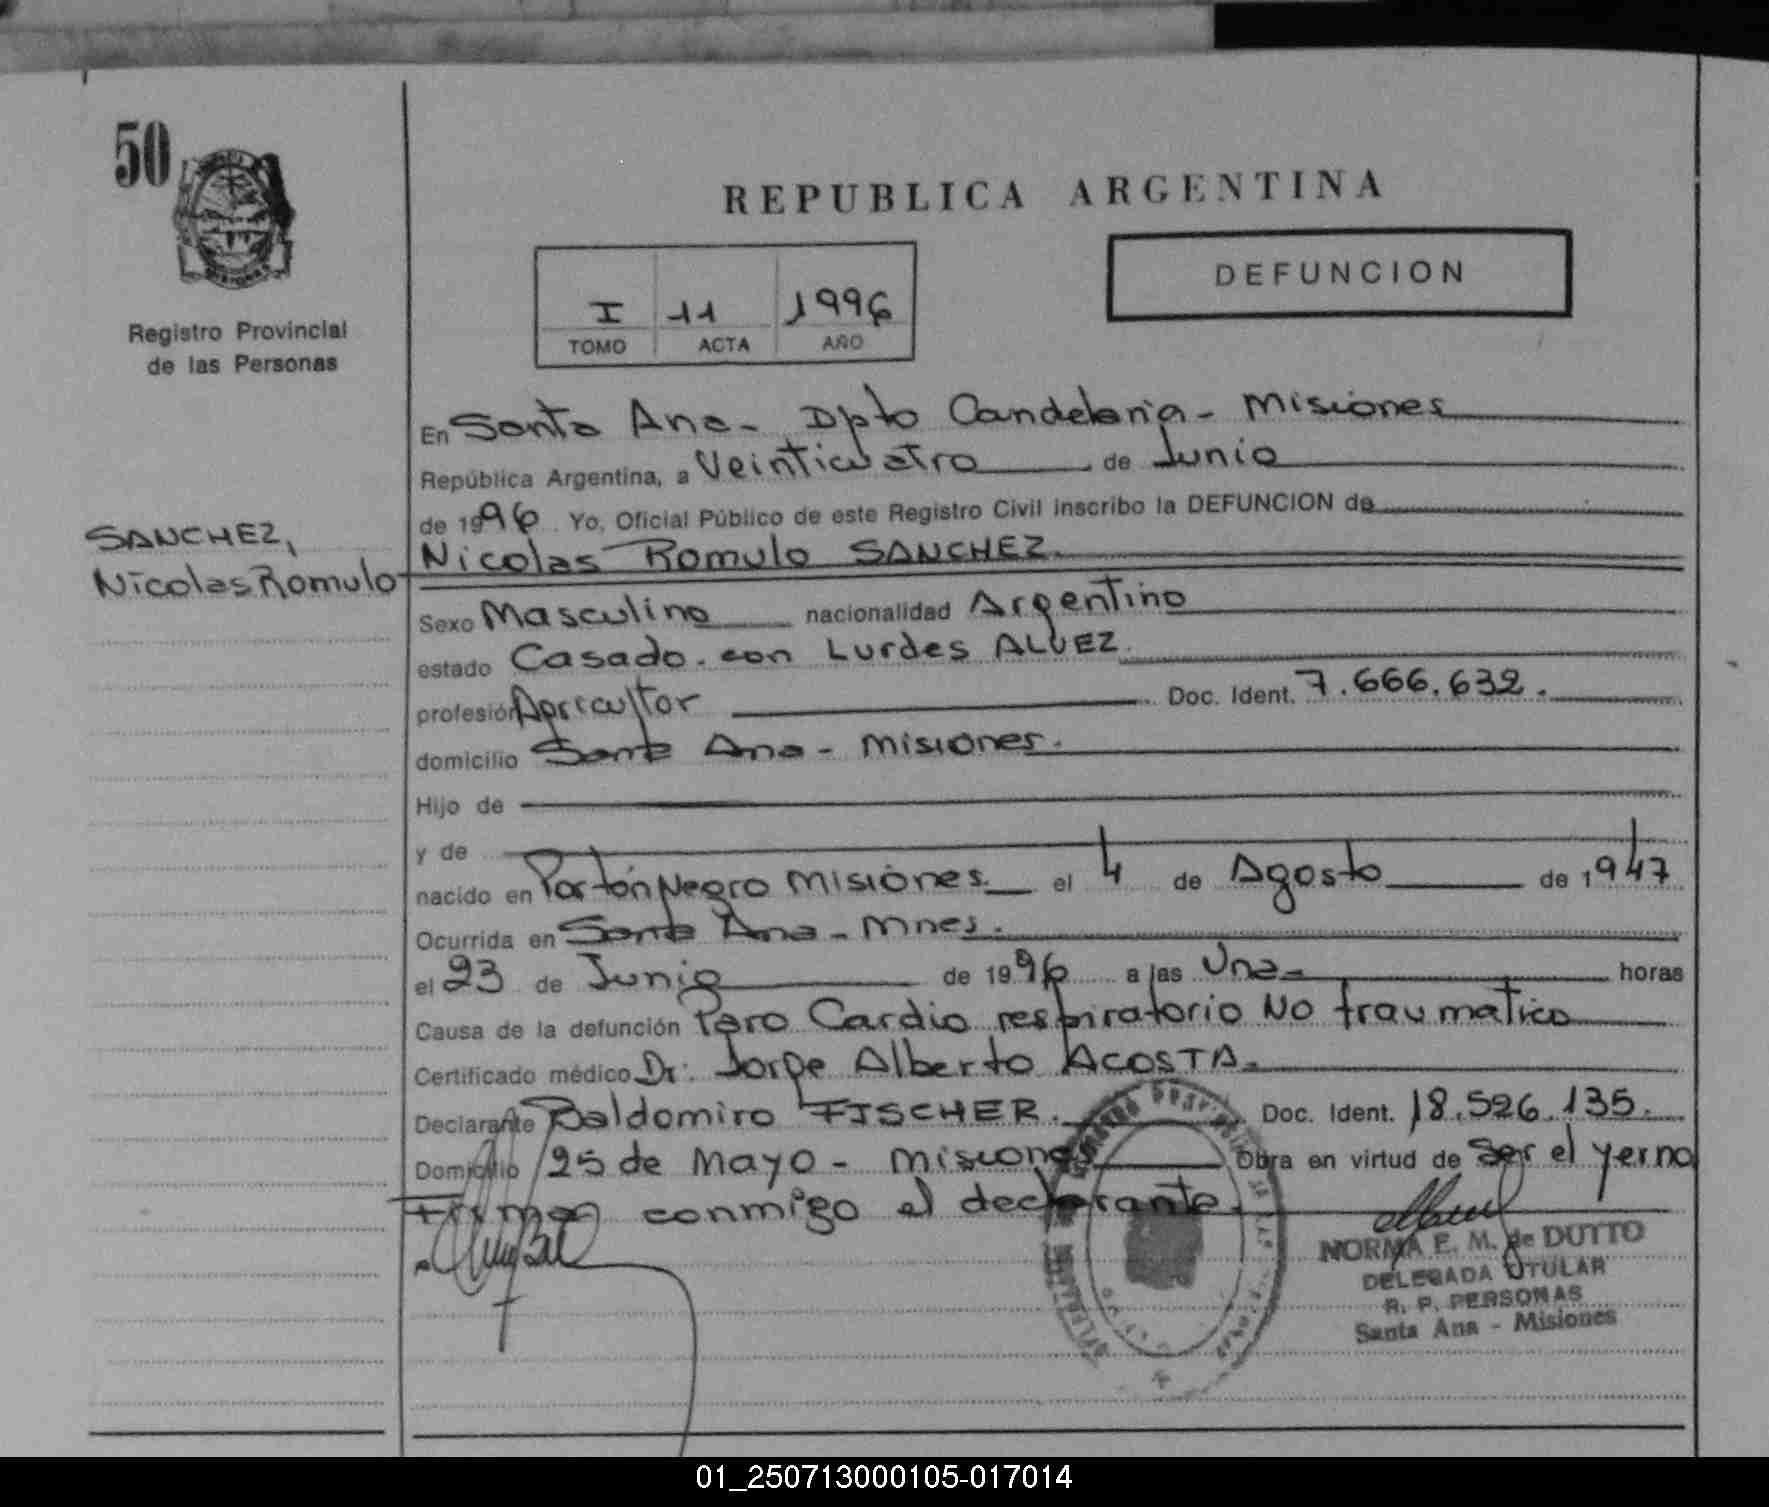 50
Registro Provincial
de las Personas
REPUBLICA ARGENTINA
I 11 1996
TOMO ACTA AÑO
DEFUNCION
SANCHEZ,
Nicolas Romulo
En Santa Ana - Dpto Candelaria - Misiones
República Argentina, a Veinticuatro de Junio
de 1996 Yo, Oficial Público de este Registro Civil inscribo la DEFUNCION de
Nicolas Romulo SANCHEZ.
Sexo Masculino nacionalidad Argentino
estado Casado. con Lurdes ALVEZ.
profesión Agricultor Doc. Ident. 7.666.632.
domicilio Santa Ana - Misiones.
Hijo de
y de
nacido en Portón Negro Misiones. el 4 de Agosto de 1947
Ocurrida en Santa Ana - Mnes.
el 23 de Junio de 1996 a las Una horas
Causa de la defunción Paro Cardio respiratorio No traumatico
Certificado médico Dr. Jorge Alberto ACOSTA.
Declarante Baldomiro FISCHER. Doc. Ident. 18.526.135.
Domicilio 25 de Mayo - Misiones Obra en virtud de Ser el yerno
Firma conmigo el declarante.
NORMA E. M. de DUTTO
DELEGADA TITULAR
R. P. PERSONAS
Santa Ana - Misiones
01_250713000105-017014